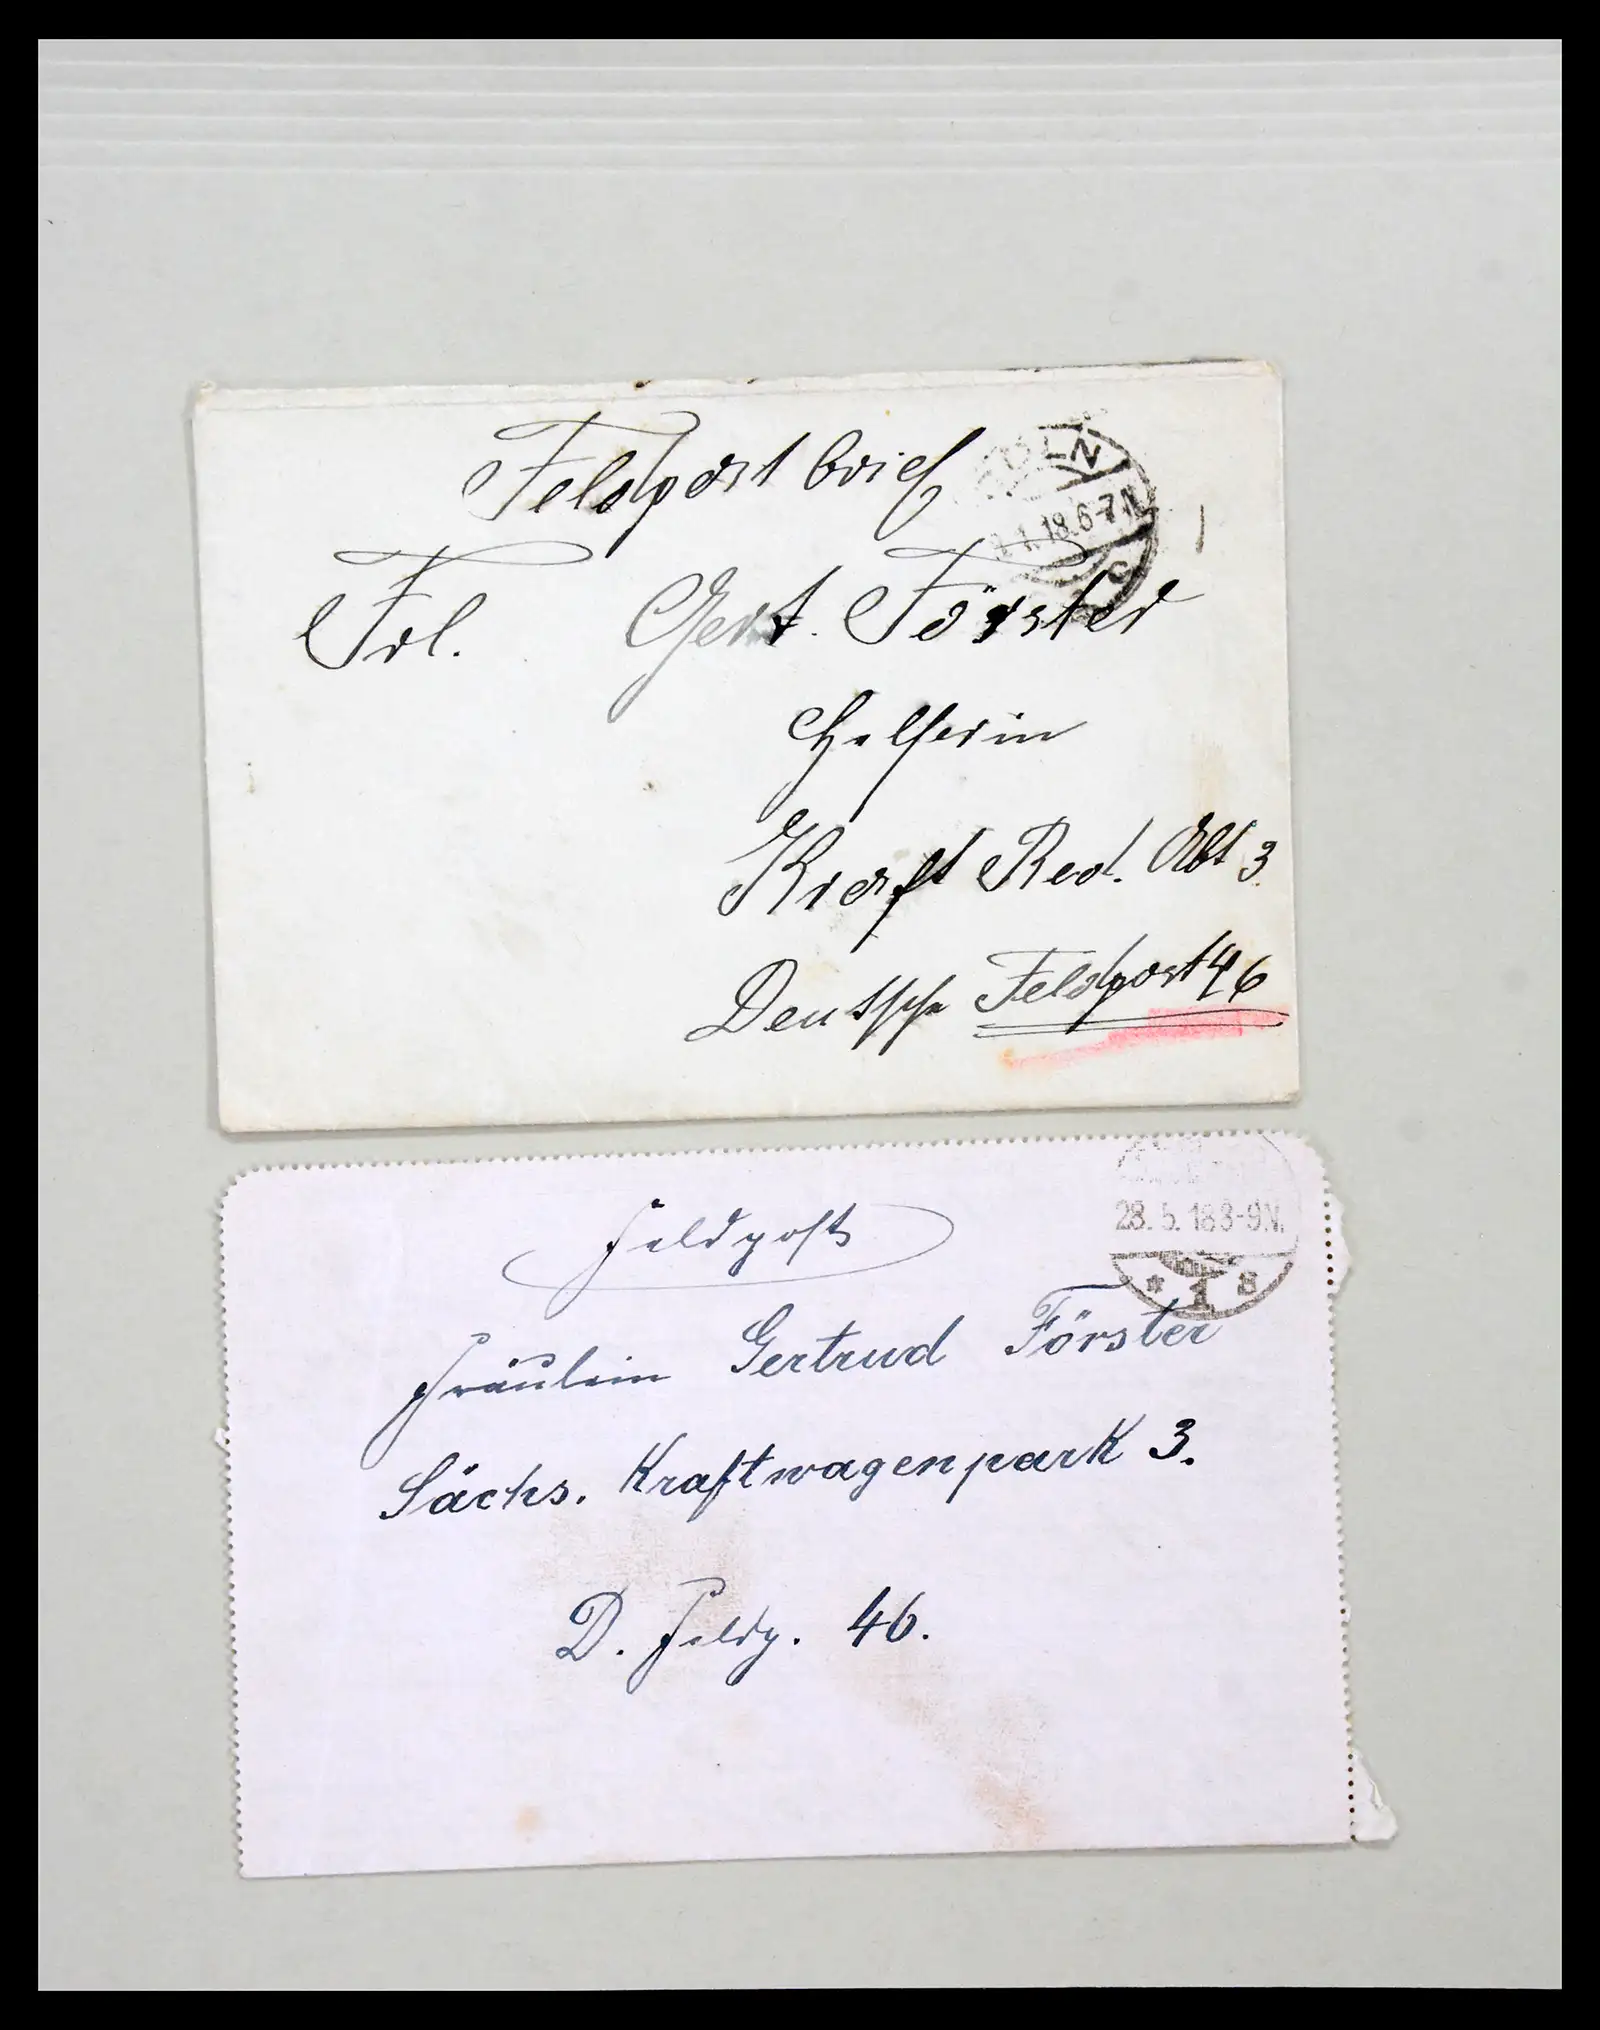 Feldpostbrief
1.18.6-7N
Frl. Gert. Förster
Helferin
Kraft Red. Abt 3
Deutsche Feldpost 46
28.5.18 8-9.V.
* 1 s
Feldpost
Fräulein Gertrud Förster
Sächs. Kraftwagenpark 3.
D. Feldp. 46.